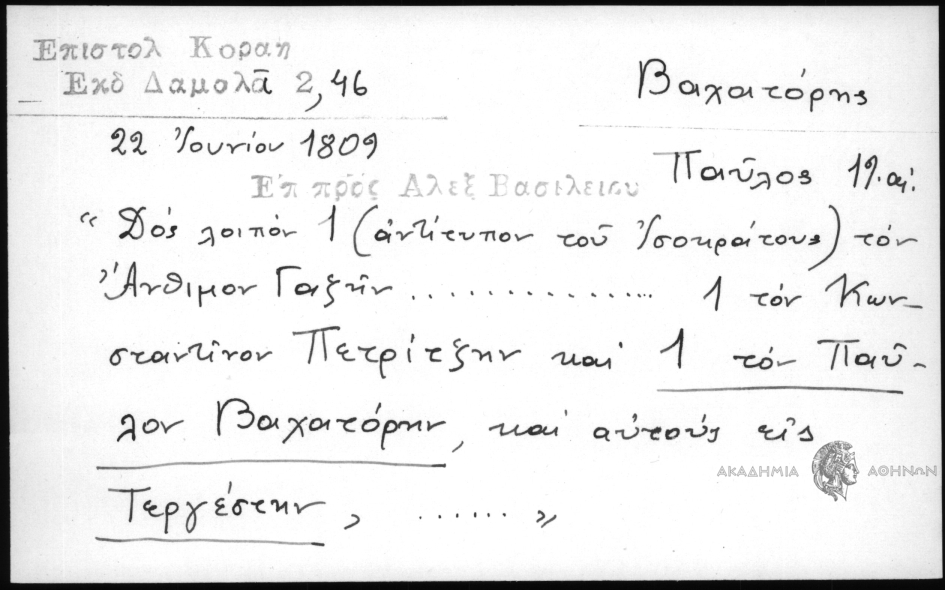 Επιστολ Κοραη
Εκδ Δαμαλᾶ 2,46
Βαχατόρης
22 Ἰουνίου 1809
Παῦλος 19. αἰ.
Ἐπ προς Αλεξ Βασιλειου
“Δός λοιπόν 1 (ἀντίτυπον τοῦ Ἰσοκράτους) τόν
Ἄνθιμον Γαζῆν .................. 1 τόν Κων-
σταντῖνον Πετρίτζην καί 1 τόν Παῦ-
λον Βαχατόρην, καί αὐτούς εἰς
Τεργέστην, ...... „
ΑΚΑΔΗΜΙΑ ΑΘΗΝΩΝ